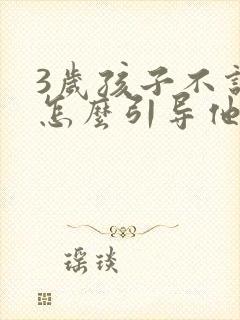 3歲孩子不
怎麼引导他
瑶琰